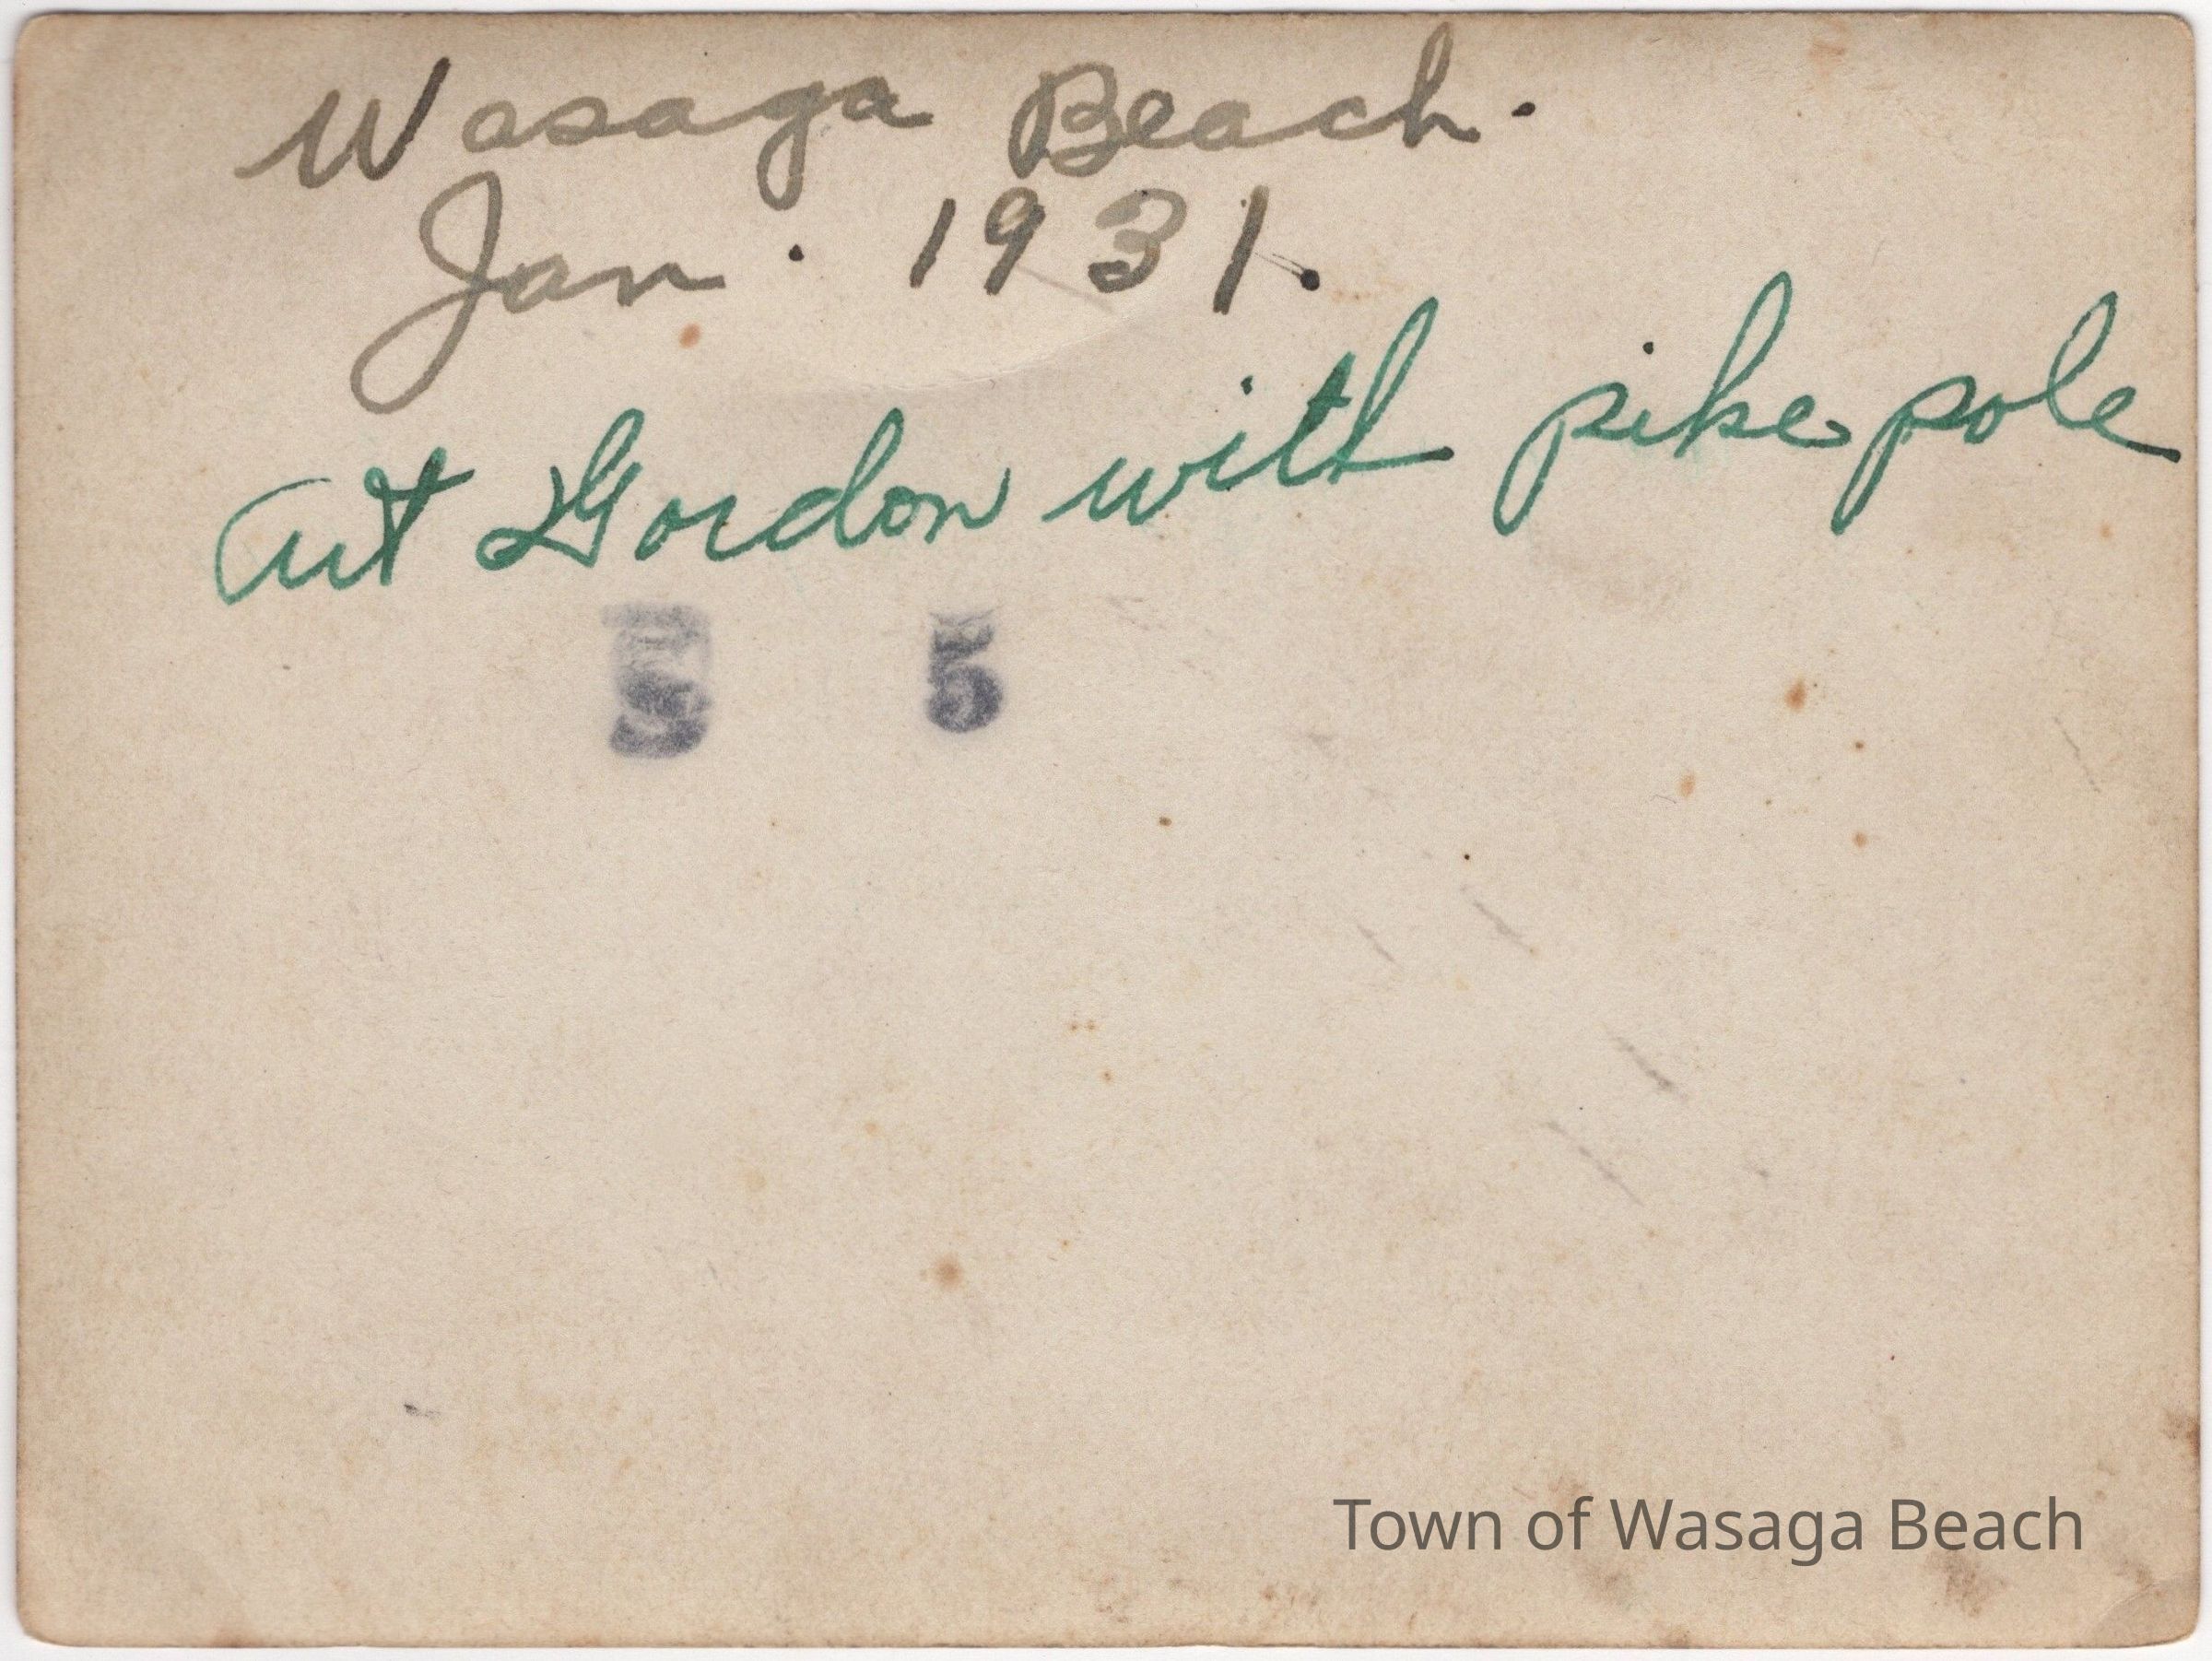 Wasaga Beach.
Jan. 1931.
Art Gordon with pike pole
5 5
Town of Wasaga Beach